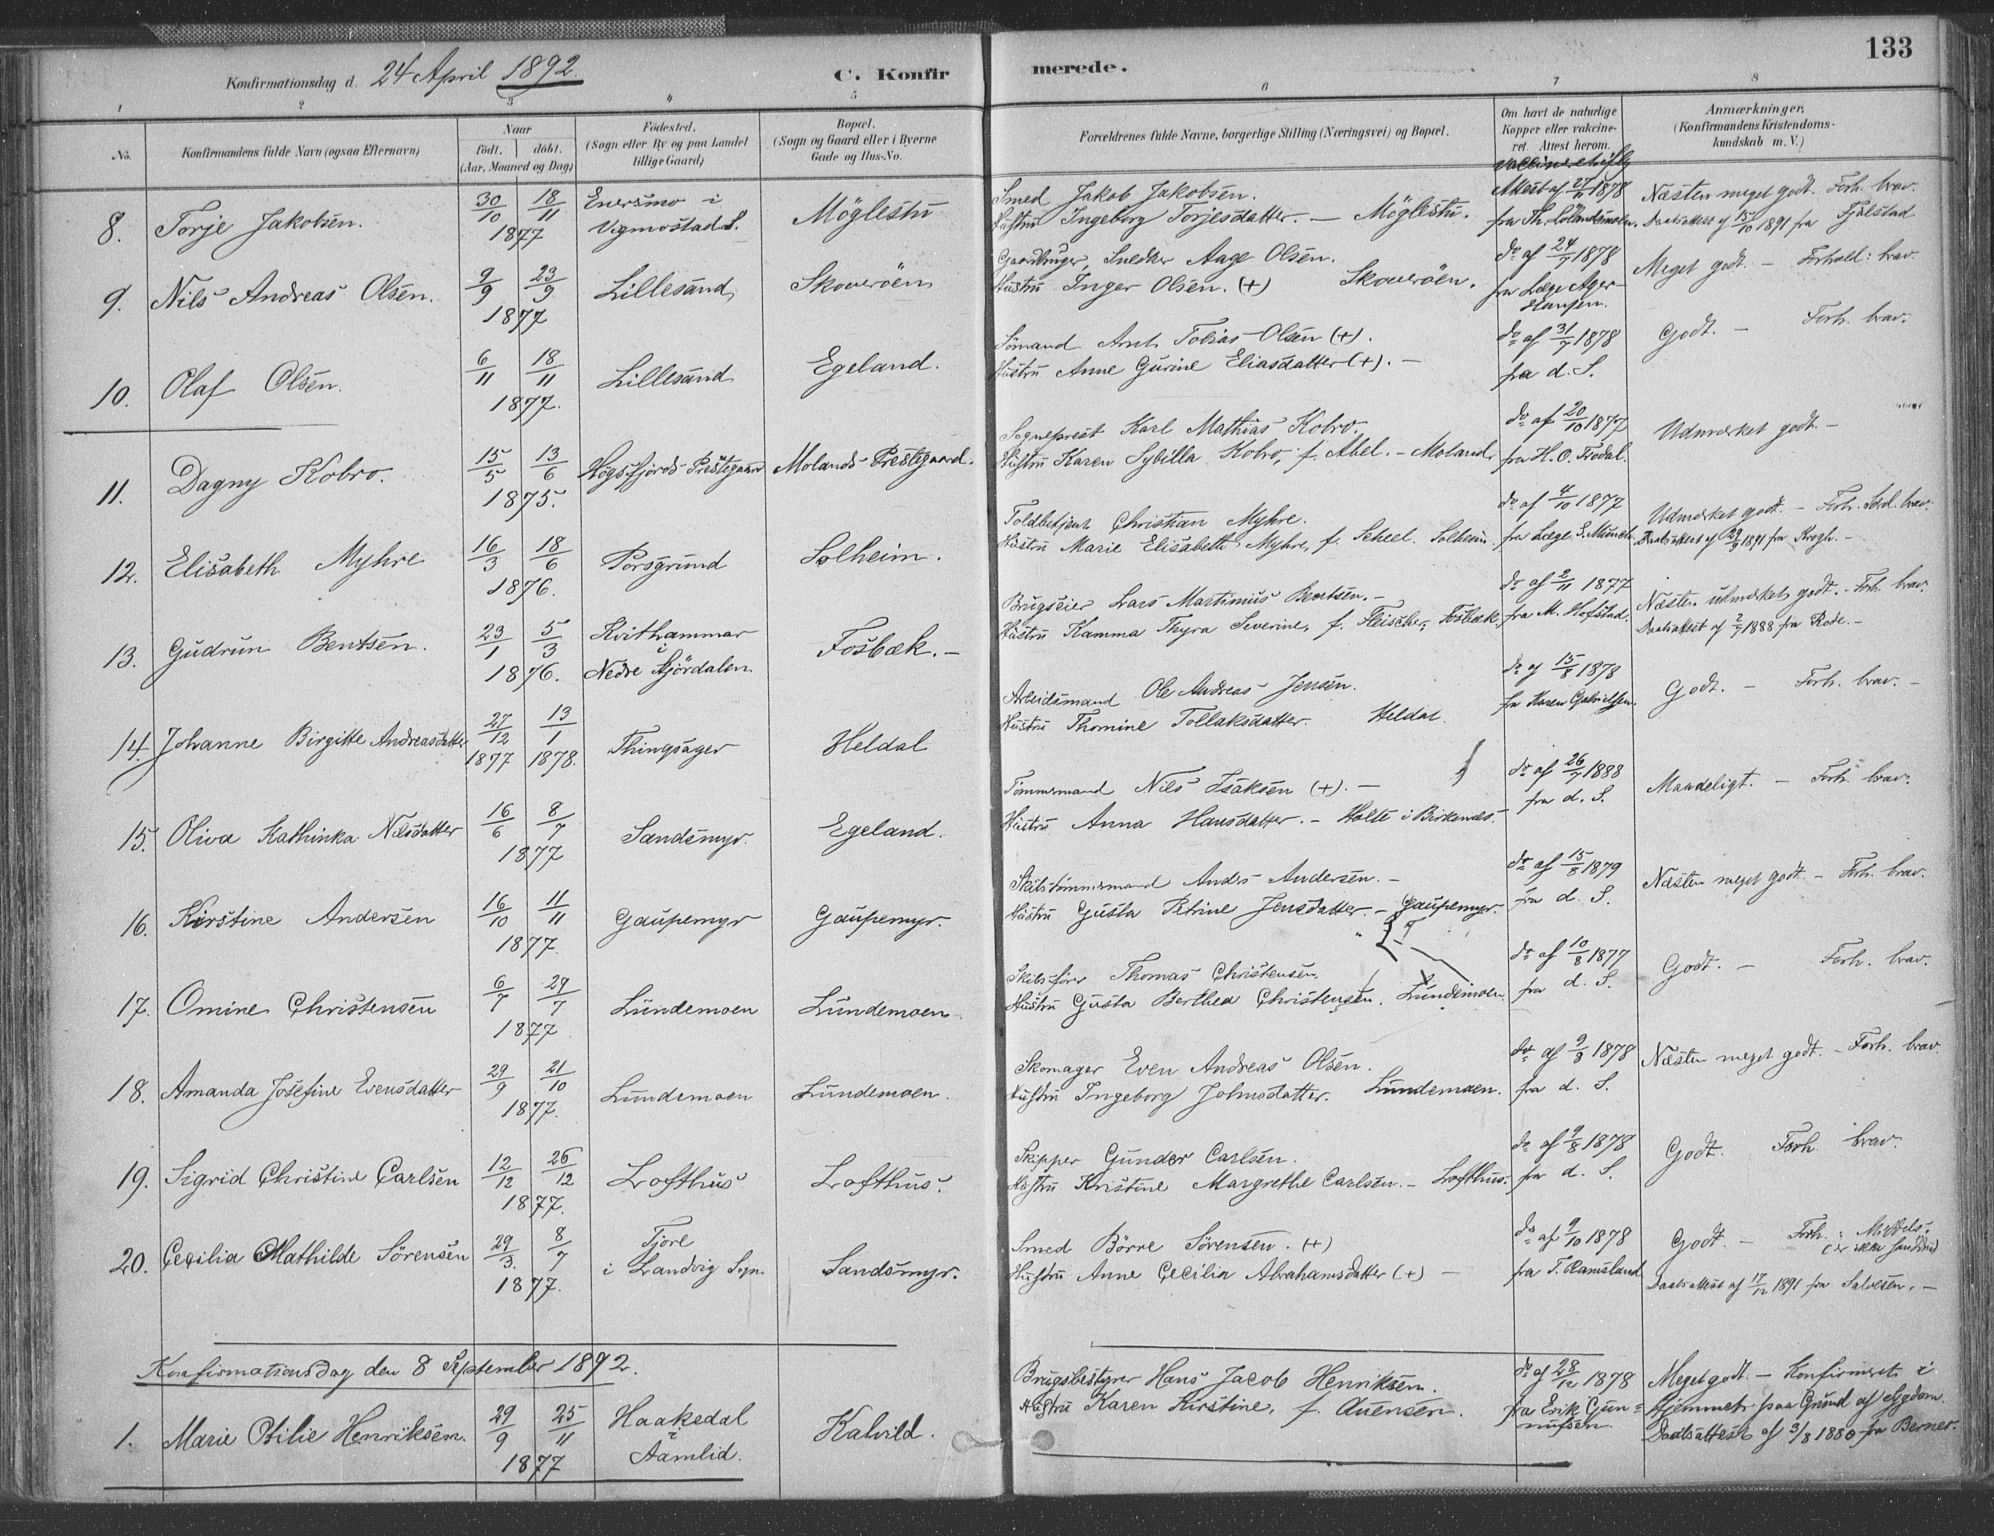 133
Konfirmationsdag d. 24 April 1892.
C. Konfirmerede.
1 2 3 4 5 6 7 8
No.
Konfirmandens fulde Navn (ogsaa Efternavn)
Naar
født. døbt.
(Aar, Maaned og Dag)
Fødested.
(Sogn eller By og paa Landet
tillige Gaard)
Bopæl.
(Sogn og Gaard eller i Byerne
Gade og Hus-No.
Forældrenes fulde Navne, borgerlige Stilling (Næringsvei) og Bopæl.
Om havt de naturlige
Kopper eller vaccine-
ret. Attest herom.
Anmærkninger.
(Konfirmandens Kristendoms-
kundskab m. V.)
8. Torje Jakobsen. 30/10 18/11 1877 Enersmo i Vigmostad S. Möglestu
Smed Jakob Jakobsen.
Hustru Ingeborg Torjesdatter. — Möglestu.
Attest af 27/ 1878
fra Th. Lölandsmoen.
Næsten meget godt. Forh. brav.
Daabsattest af 15/10 1891 fra Fjalstad
9. Nils Andreas Olsen. 9/9 23/9 1877 Lillesand Skoveröen
Gaardbruger, Snedker Aage Olsen.
Hustru Inger Olsen. (+) Skoveröen.
do af 24/7 1878
fra Læge Ager-
Hansen.
Meget godt. — Forhold: brav.
10. Olaf Olsen. 6/11 18/11 1877. Lillesand Egeland.
Sömand Arnt Tobias Olsen (+).
Hustru Anne Gurine Eliasdatter (+). —
do af 31/7 1878
fra d. S.
Godt. — Forh. brav.
11. Dagny Kobro. 15/5 13/6 1875. Högsfjords Prestegaard Molands Prestegaard.
Sogneprest Karl Mathias Kobro.
Hustru Karen Sybilla Kobro, f. Abel. — Moland.
do af 20/10 1877
fra H. O. Fodal.
Udmærket godt. —
12. Elisabeth Myhre 16/3 18/6 1876. Porsgrund Solheim.
Toldbetjent Christian Myhre.
Hustru Marie Elisabeth Myhre, f. Scheel. Solheim.
do af 4/10 1877
fra Læge S. Münch.
Udmærket godt. — Forh. brav.
Daabsattest af 29/9 1891 fra Krogh. —
13. Gudrun Bentsen. 23/1 5/3 1876. Kvithammar i Nedre Stjördalen. Fosbæk. —
Brugseier Lars Martinius Bentsen. —
Hustru Kamma Thyra Severine, f. Fleischer, Fosbæk,
do af 2/11 1877
fra M. Hofstad.
Næsten udmærket godt. — Forh. brav.
Daabsattest af 2/7 1888 fra Rode. —
14. Johanne Birgitte Andreasdatter 27/12 1877 13/1 1878. Thingsager Heldal
Arbeidsmand Ole Andreas Jensen.
Hustru Thomine Tollaksdatter. Heldal.
do af 15/8 1878
fra Karen Gabrielsen.
Godt. — Forh. brav. —
15. Oliva Kathinka Nilsdatter 16/6 8/7 1877 Sandsmyr. Egeland.
Tömmermand Nils Isaksen (+). —
Hustru Anna Hansdatter. — Holte i Birkenes.
do af 26/7 1888
fra d. S.
Maadeligt. — Forh. brav.
16. Kirstine Andersen 16/10 11/11 1877. Gaupemyr Gaupemyr.
Skibstömmermand Anders Andersen. —
Hustru Gusta Petrine Jensdatter. — Gaupemyr.
do af 15/8 1879
fra d. S.
Næsten meget godt. — Forh. brav.
17. Omine Christensen 6/7 29/7 1877. Lundemoen Lundemoen.
Skibsförer Thomas Christensen,
Hustru Gusta Berthea Christensen. Lundemoen.
do af 10/8 1877
fra d. S.
Godt. — Forh. brav.
18. Amanda Josefine Evensdatter 29/9 21/10 1877. Lundemoen Lundemoen.
Skomager Even Andreas Olsen.
Hustru Ingeborg Johnsdatter. Lundemoen.
do af 9/8 1878
fra d. S.
Næsten meget godt. — Forh. brav.
19. Sigrid Christine Carlsen 12/12 26/12 1877. Lofthus Lofthus.
Skipper Gunder Carlsen.
Hustru Kristine Margrethe Carlsen. — Lofthus.
do af 9/8 1878
fra d. S.
Godt. Forh. brav.
20. Cecilia Mathilde Sörensen 29/3. 8/7 1877. Fjore i Landvig Sogn. Sandsmyr.
Smed Börre Sörensen. (+)
Hustru Anne Cecilia Abrahamsdatter (+) —
do af 9/10 1878
fra T. Ramsland
Godt. — Forh.:
Daabsattest af 17/12 1891 fra Salvesen. —
Konfirmationsdag den 8 September 1892.
1. Marie Otilie Henriksen. 29/9 25/11 1877 Haakedal i Aamlid. Kalvild.
Brugsbestyrer Hans Jacob Henriksen.
Hustru Karen Kirstine, f. Auensen.
do af 28/12 1878
fra Erik Gun-
nufsen
Meget godt. — Konfirmeret i
Hjemmet paa Grund af Sygdom.
Daabsattest af 3/8 1880 fra Berner.